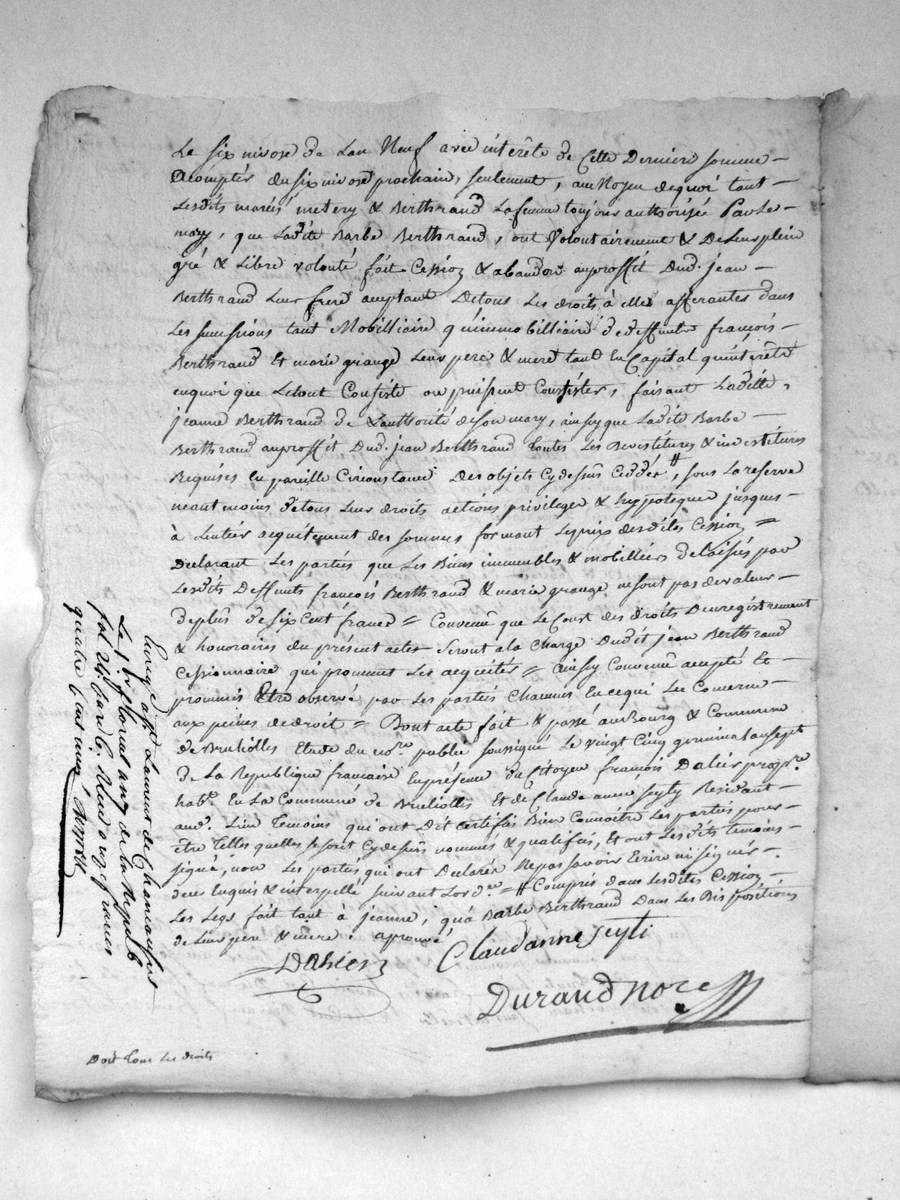 Le six nivose de Lan Neuf avec intérêts de Cette Derniere somme
Acompter du six nivose prochain, seulement, au Moyen dequoi tant
Lesdits mariés metery & Berthrand Lafemme toujours authorisée Par Le
mary, que Ladite Barbe Berthrand, ont Volontairement & De Leur plein
gré & Libre volonté fait Cession & abandon auproffit Dud. jean
Berthrand Leur frere aceptant Detous Les droits à elles afferantes dans
Les successions tant Mobilliaire qu'immobilliaire de deffunts françois
Berthrand Et marie grange Leurs pere & mere tant En Capital qu'intérêts
enquoi que Letout Consiste ou puissent Consister, faisant Ladite
jeanne Berthrand de Lauthorité deson mary, ainsy que Ladite Barbe
Berthrand auproffit Dud. jean Berthrand toutes Les Devestitures & investitures
Requises En pareille Circonstance Des objets Cydessus Ceddés #, sous La reserve
neant moins detous Leur droits actions privileges & hyppoteque jusques
à Lentier acquitement des sommes formant Leprix desdites Cession =
Declarant Les parties que Les Biens immeubles & mobilliers delaissés par
Lesdits Deffunts françois Berthrand & marie grange ne sont pas de valeur
deplus de six Cent francs = Convenu que Le Cout des droits Denregistrement
& honoraires du present acte Seront a la Charge Dudit jean Berthrand
Cessionnaire qui promment Les acquiter = Ainsy Convenu accepté Et
prommis Etre observé par Les parties Chacunes En cequi Les Concerne
aux peines de droit = Dont acte fait & passé au Bourg & Commune
de Brullioles Etude du no.re public soussigné Le vingt Cinq germinal an sept
de La Republique francaise En présence du Citoyen francois Dalier propre.
hab.t En La Commune de Brullioles Et de Claude anne Seyty Residant
aud. Lieu temoins qui ont Dit certifiés Bien Connoitre Les parties pour
être Telles quelles se sont Cydessus nommées & qualifiées, Et ont Lesdits temoins
signé, non Les parties qui ont Declaré Nepas savoir Ecrire ni signer
deces Enquis & interpellé suivant Lord.ce = # Compris dans Lesdites Cession
Les Legs fait tant à jeanne, qu'à Barbe Berthrand Dans Les Dispositions
de Leurs pere & mere : aprouvé
Dalier
Claudanne seyti
Durand no.re
Enreg.é a St Laurent de Chamousset
Le 1er floreal an 7 de la Repub
fol 24
quatre
Doit tous Les droits